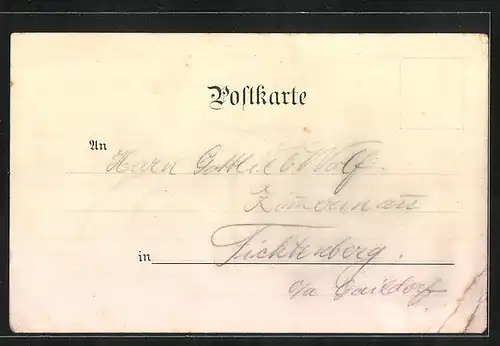 Postkarte
An Herrn Gottlieb Wolf.
Zimmermann
in Fichtenberg.
o/a Gaildorf